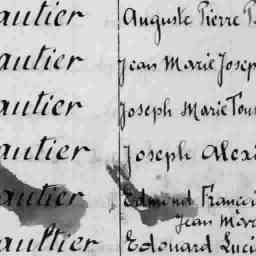 autier Auguste Pierre
autier Jean Marie Josep
autier Joseph Marie Tou
autier Joseph Alexi
autier Edmond Françoi
Jean Mar
aultier Edouard Luci